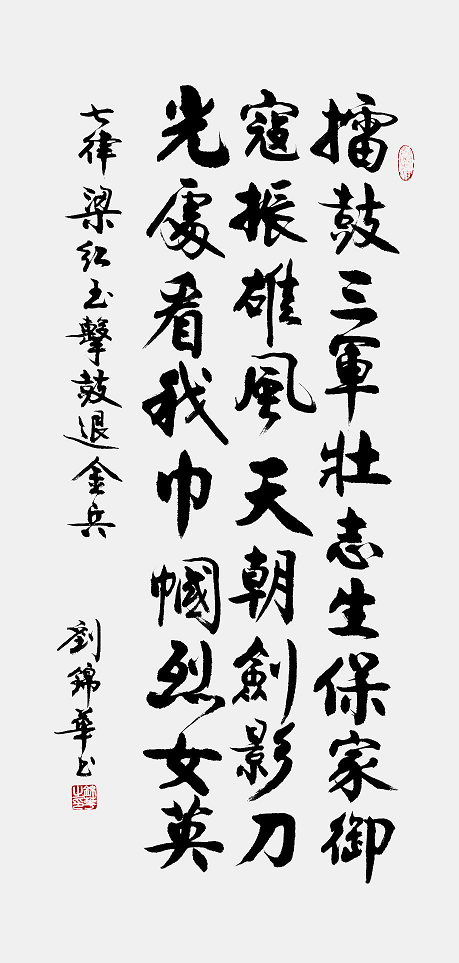 擂鼓三軍壯志生保家御
寇振雄風天朝劍影刀
光處看我巾幗烈女英
七律梁红玉擊鼓退金兵
劉錦華书